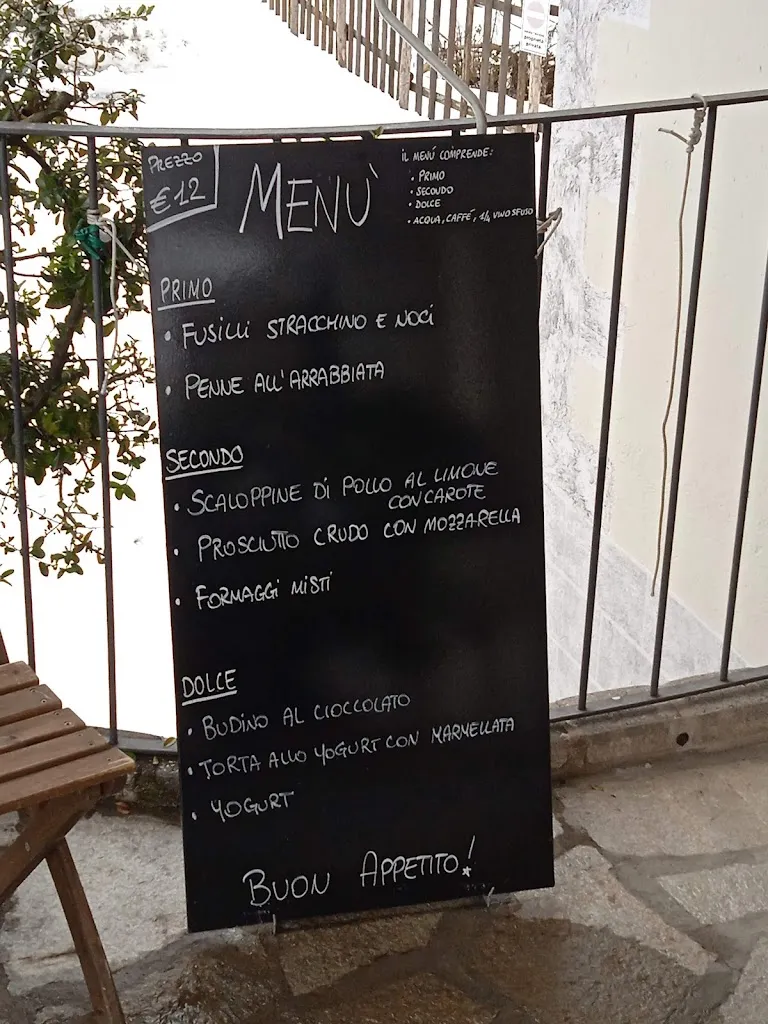 PREZZO
€12
MENÙ
IL MENÚ COMPRENDE:
• PRIMO
• SECONDO
• DOLCE
• ACQUA, CAFFÉ, 1/4 VINO SFUSO
PRIMO
• FUSILLI STRACCHINO E NOCI
• PENNE ALL'ARRABBIATA
SECONDO
• SCALOPPINE DI POLLO AL LIMONE
CON CAROTE
• PROSCIUTTO CRUDO CON MOZZARELLA
• FORMAGGI MISTI
DOLCE
• BUDINO AL CIOCCOLATO
• TORTA ALLO YOGURT CON MARMELLATA
• YOGURT
BUON APPETITO!